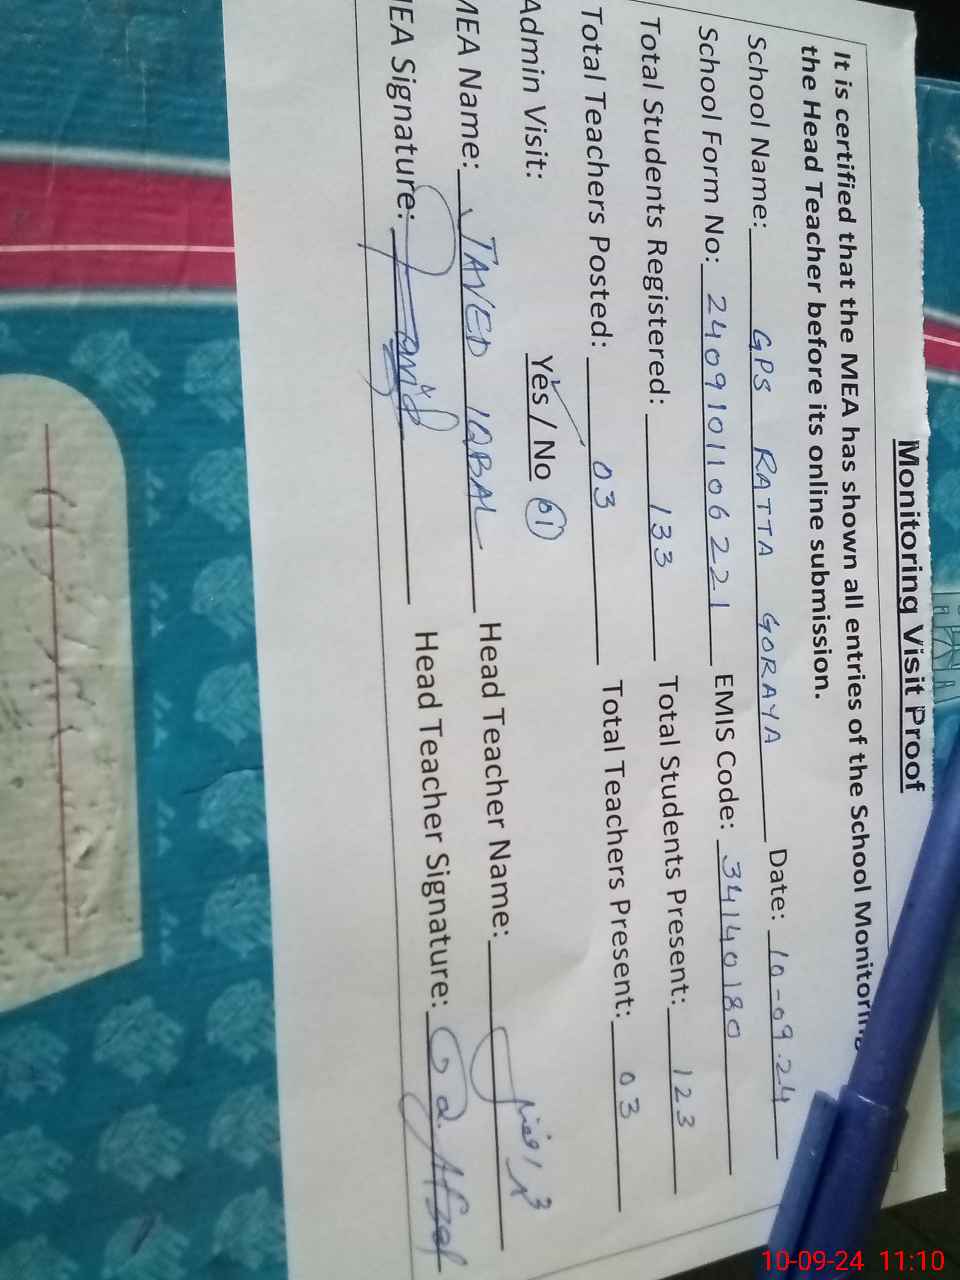 Monitoring Visit Proof
It is certified that the MEA has shown all entries of the School Monitoring
the Head Teacher before its online submission.
School Name: GPS RATTA GORAYA Date: 10-09.24
School Form No: 2409101106221 EMIS Code: 34140180
Total Students Registered: 133 Total Students Present: 123
Total Teachers Posted: 03 Total Teachers Present: 03
Admin Visit: Yes / No 01
MEA Name: JAVED IQBAL Head Teacher Name:
MEA Signature: Javid Head Teacher Signature: Afzal
10-09-24 11:10